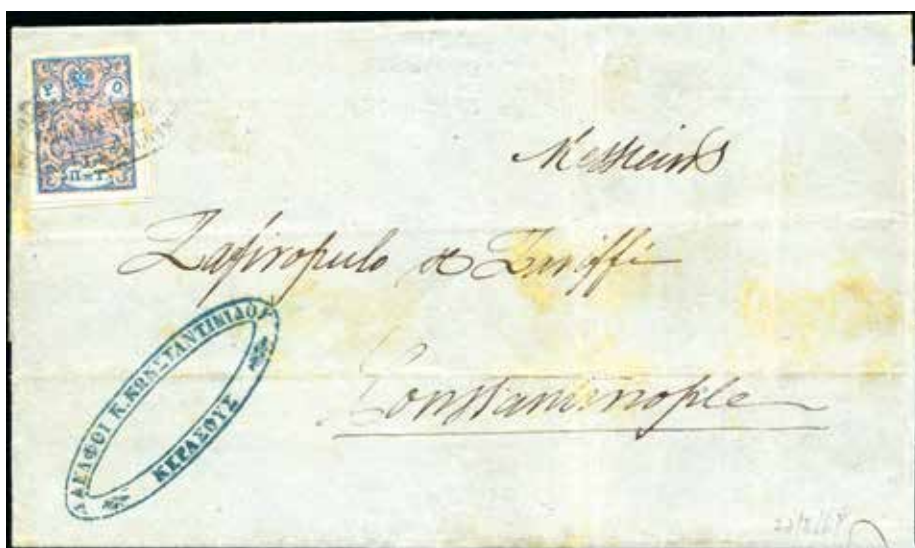 Р О
П Т
Messieurs
Zafiropulo & Zariffi
Constantinople
ΑΔΕΛΦΟΙ Κ. ΚΩΝΣΤΑΝΤΙΝΙΔΟΥ
ΚΕΡΑΣΟΥΣ